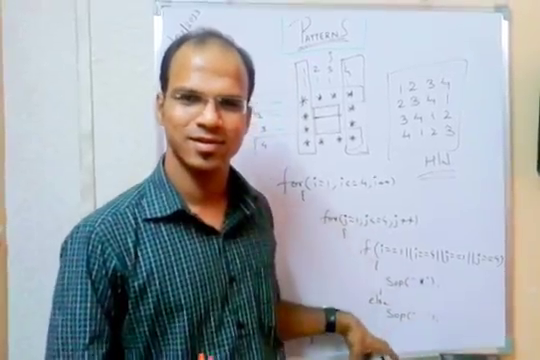 PATTERNS
3
1 2 3 4
1 1 1
* * * *
* *
* *
* * * *
3
4
1 2 3 4
2 3 4 1
3 4 1 2
4 1 2 3
HW
for(i=1; i<=4; i++)
{
for(j=1; j<=4; j++)
{
if(i==1||i==4||j==1||j==4)
{
Sop("*");
else
Sop(" ");